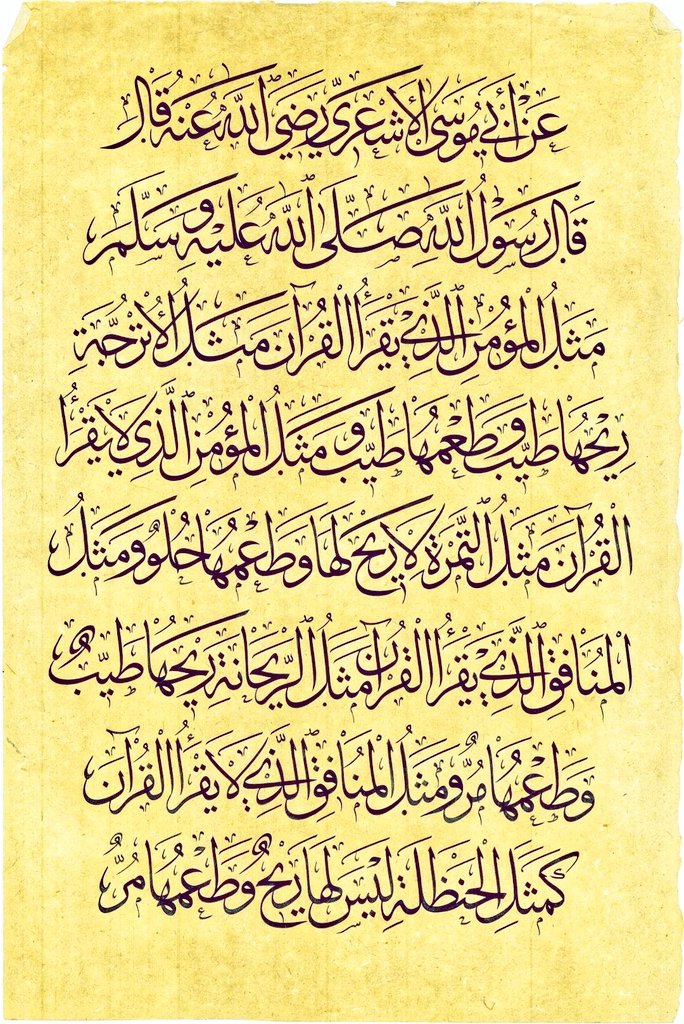 عَنْ أَبِي مُوسَى الأَشْعَرِيِّ رَضِيَ اللَّهُ عَنْهُ قَالَ
قَالَ رَسُوْلُ اللَّهِ صَلَّى اللَّهُ عَلَيْهِ وَسَلَّمَ
مَثَلُ الْمُؤْمِنِ الَّذِي يَقْرَأُ الْقُرْآنَ مَثَلُ الْأُتْرُجَّةِ
رِيْحُهَا طَيِّبٌ وَطَعْمُهَا طَيِّبٌ وَمَثَلُ الْمُؤْمِنِ الَّذِي لَا يَقْرَأُ
الْقُرْآنَ مَثَلُ التَّمْرَةِ لَا رِيْحَ لَهَا وَطَعْمُهَا حُلْوٌ وَمَثَلُ
الْمُنَافِقِ الَّذِي يَقْرَأُ الْقُرْآنَ مَثَلُ الرَّيْحَانَةِ رِيْحُهَا طَيِّبٌ
وَطَعْمُهَا مُرٌّ وَمَثَلُ الْمُنَافِقِ الَّذِي لَا يَقْرَأُ الْقُرْآنَ
كَمَثَلِ الْحَنْظَلَةِ لَيْسَ لَهَا رِيْحٌ وَطَعْمُهَا مُرٌّ